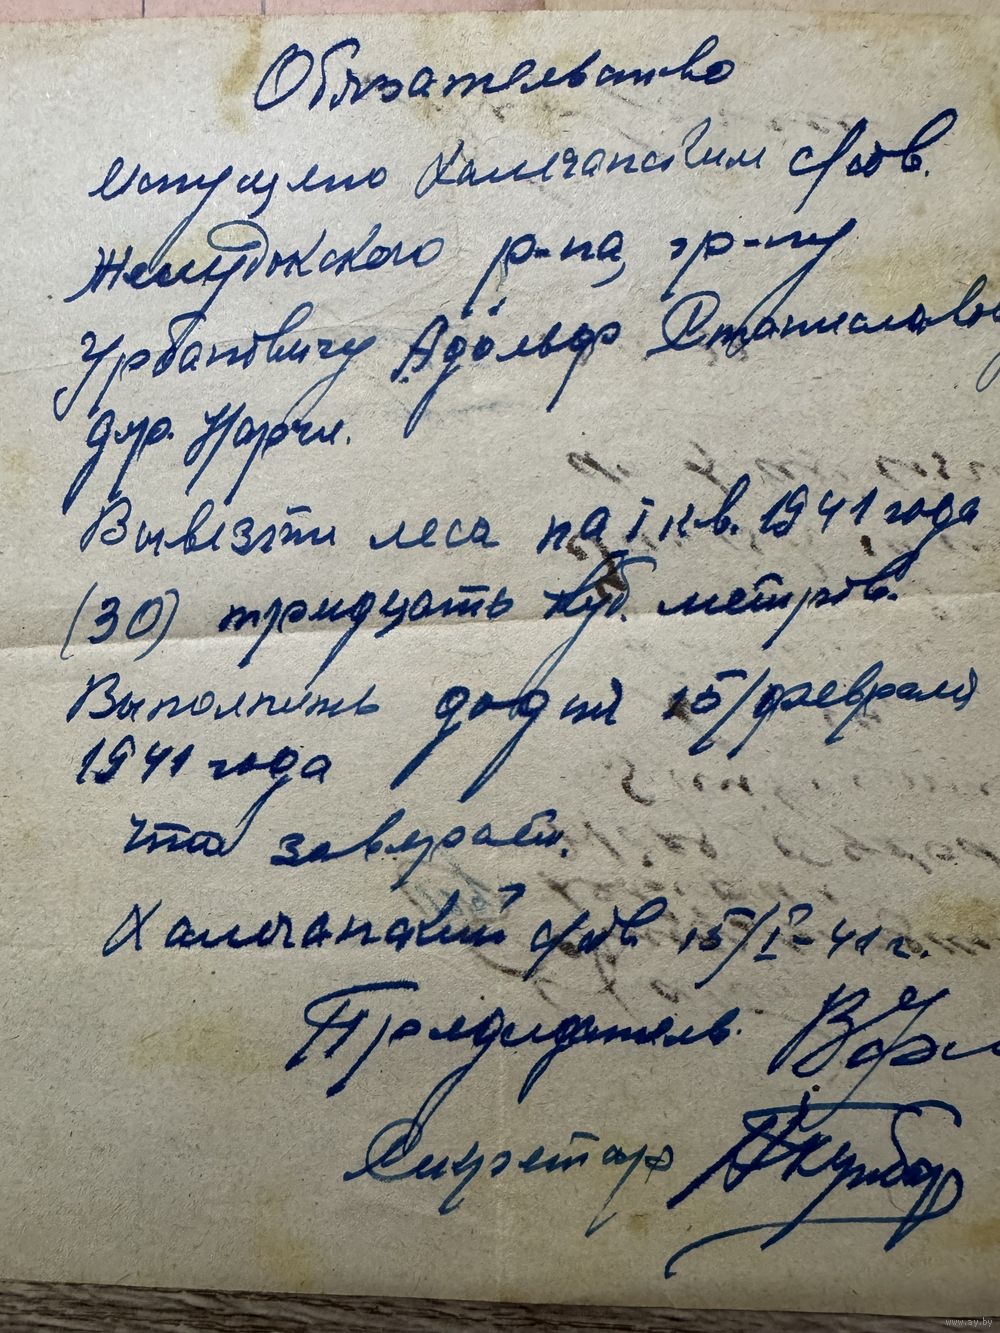 Обязательство
Халечанским с/сов.
Желудокского р-на, гр-ну
Урбановичу Адольф Станиславов
дер.
Вывезти леса на I кв. 1941 года
(30) тридцать куб. метров.
Выполнить до дня 15/февраля
1941 года
что
с/сов 15/I-41 г.
Председатель.
Секретарь
www.ay.by